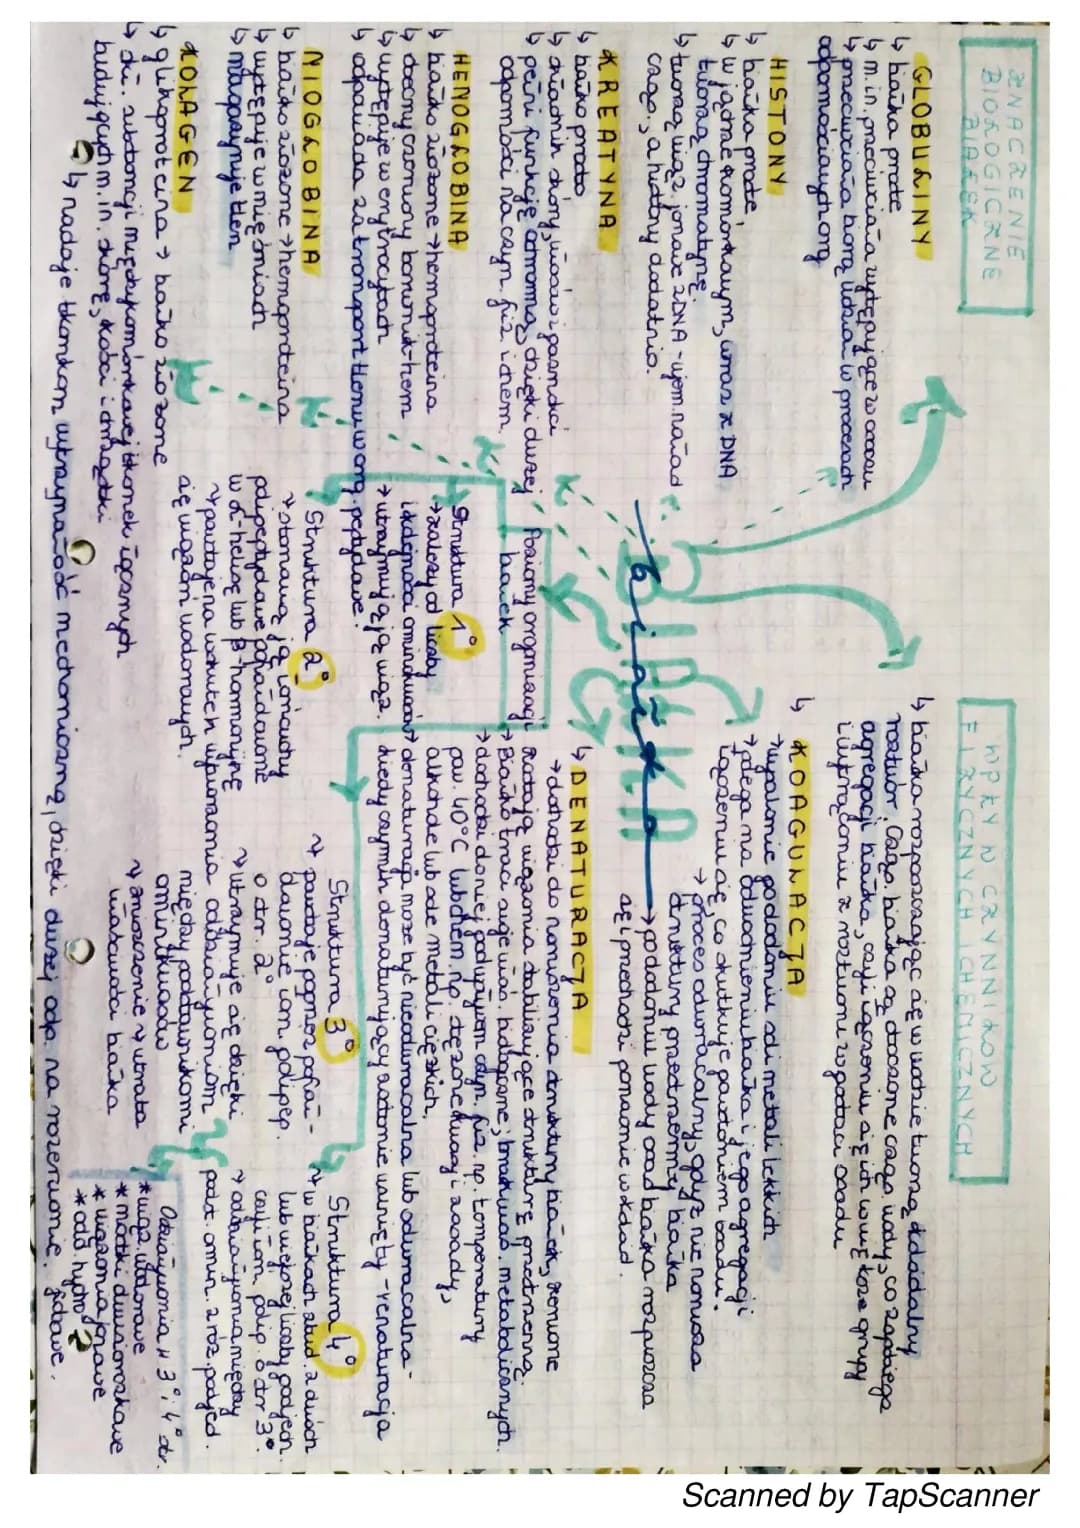 ZNACZENIE
BIOLOGICZNE
BIAŁEK
GLOBULINY
↳ białka proste
↳ m.in. przeciwciała występujące w osoczu
↳ przeciwciała biorą udział w procesach
odpornościowych org
HISTONY
↳ białka proste,
↳ w jądrze komórkowym, wraz z DNA
tworzą chromatynę.
↳ tworzą wiąz. jonowe z DNA - ujem. naład
cząs., a histony dodatnio.
KREATYNA
↳ białko proste
↳ składnik skóry, włosów i paznokci
↳ pełni funkcję ochronną, dzięki dużej
odporności na czyn. fiz. i chem.
HEMOGLOBINA
↳ białko złożone → hemoproteina
↳ obecny czerwony barwnik-hem
↳ występuje w erytrocytach
↳ odpowiada za transport tlenu w org.
MIOGLOBINA
↳ białko złożone → hemoproteina
↳ występuje w mięśniach
↳ magazynuje tlen
KOLAGEN
↳ glikoproteina → białko złożone
↳ skł. substancji międzykomórkowej tkanek łącznych
budujących m.in. skórę, kości i chrząstki.
↳ nadaje tkankom wytrzymałość mechaniczną, dzięki dużej odp. na rozerwanie.
BIAŁKA
białka
Poziomy organizacji
białek
Struktura 1°
→ zależy od liczby
i kolejności aminokwasów
→ utrzymują ją wiąz.
peptydowe.
Struktura 2°
→ stanowią ją łańcuchy
polipeptydowe pofałdowane
w α-helisę lub β-harmonijkę
→ powstaje na skutek wytworzenia
się wiązań wodorowych.
Struktura 3°
→ powstaje poprzez pofał-
dowanie łań. polipep.
o str. 2°
→ utrzymuje się dzięki
oddziaływaniom
między podstawnikami
aminokwasów
→ zniszczenie → utrata
właściwości białka
Struktura 4°
→ w białkach zbud. z dwóch
lub większej liczby podjedn.
czyli łań. polip. o str 3°.
→ oddziaływania między
podst. amin. z róż. podjed.
Oddziaływania w 3° i 4° str.
* wiąz. wodorowe
* mostki dwusiarczkowe
* wiązania jonowe
* odd hydrofobowe.
WPŁYW CZYNNIKÓW
FIZYCZNYCH I CHEMICZNYCH
↳ białka rozpuszczając się w wodzie tworzą koloidalny
roztwór. Cząs. białka są otoczone cząs. wody, co zapobiega
agregacji białka, czyli łączeniu się ich w większe grupy
i wytrącaniu z roztworu w postaci osadu
↳ KOAGULACJA
→ wysalanie pod dodaniu soli metali lekkich
→ polega na odwodnieniu białka i jego agregacji
łączeniu się, co skutkuje powstaniem osadu.
→ proces odwracalny, gdyż nie narusza
struktury przestrzennej białka
→ po dodaniu wody osad białka rozpuszcza
się i przechodzi ponownie w koloid.
↳ DENATURACJA
→ dochodzi do naruszenia struktury białek, zerwane
zostają wiązania stabilizujące strukturę przestrzenną.
→ Białko traci swoje właś. biologiczne,
→ dochodzi do niej pod wpływem czyn. fiz. np. temperatury
pow. 40°C lub chem. np. stężone kwasy i zasady,
alkohole lub sole metali ciężkich,
→ denaturacja może być nieodwracalna lub odwracalna -
kiedy czynnik denaturujący zostanie usunięty - renaturacja
Scanned by TapScanner